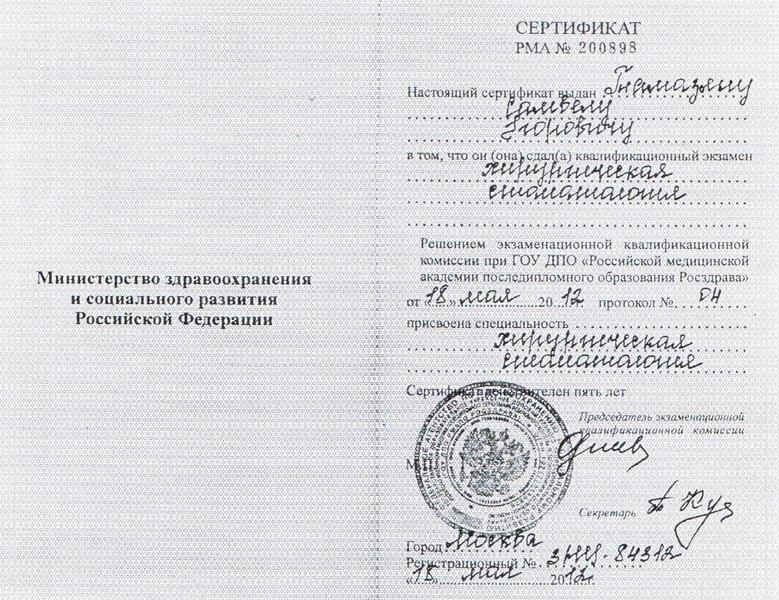 Министерство здравоохранения
и социального развития
Российской Федерации
СЕРТИФИКАТ
РМА № 200898
Настоящий сертификат выдан Гнамазяну
Самвелу
Игоровичу
в том, что он (она) сдал(а) квалификационный экзамен
хирургическая
стоматология
Решением экзаменационной квалификационной
комиссии при ГОУ ДПО «Российской медицинской
академии последипломного образования Росздрава»
от «18» мая 2012 протокол № 04
присвоена специальность
хирургическая
стоматология
Сертификат действителен пять лет
Председатель экзаменационной
квалификационной комиссии
Секретарь
Город Москва
Регистрационный № 84312
«18» мая 2012г.